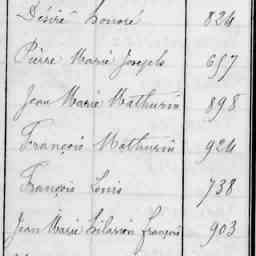 Désiré honoré 824
Pierre Marie Joseph 657
Jean Marie Mathurin 898
François Mathurin 924
François Louis 738
Jean Marie hilarion François 903